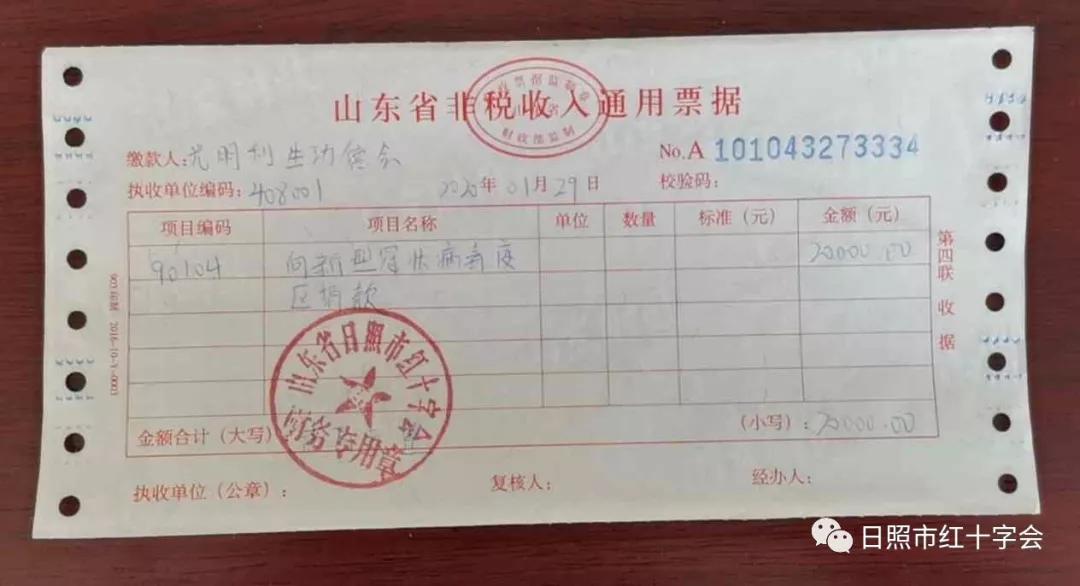 山东省非税收入通用票据
财政部监制
缴款人:光明利生功德会
No.A 101043273334
执收单位编码:408001
2020年01月29日
校验码:
项目编码 项目名称 单位 数量 标准(元) 金额(元)
90104 向新型冠状病毒疫 20000.00
区捐款
第四联 收据
山东省日照市红十字会
财务专用章
金额合计(大写)
(小写):20000.00
执收单位(公章):
复核人:
经办人:
日照市红十字会